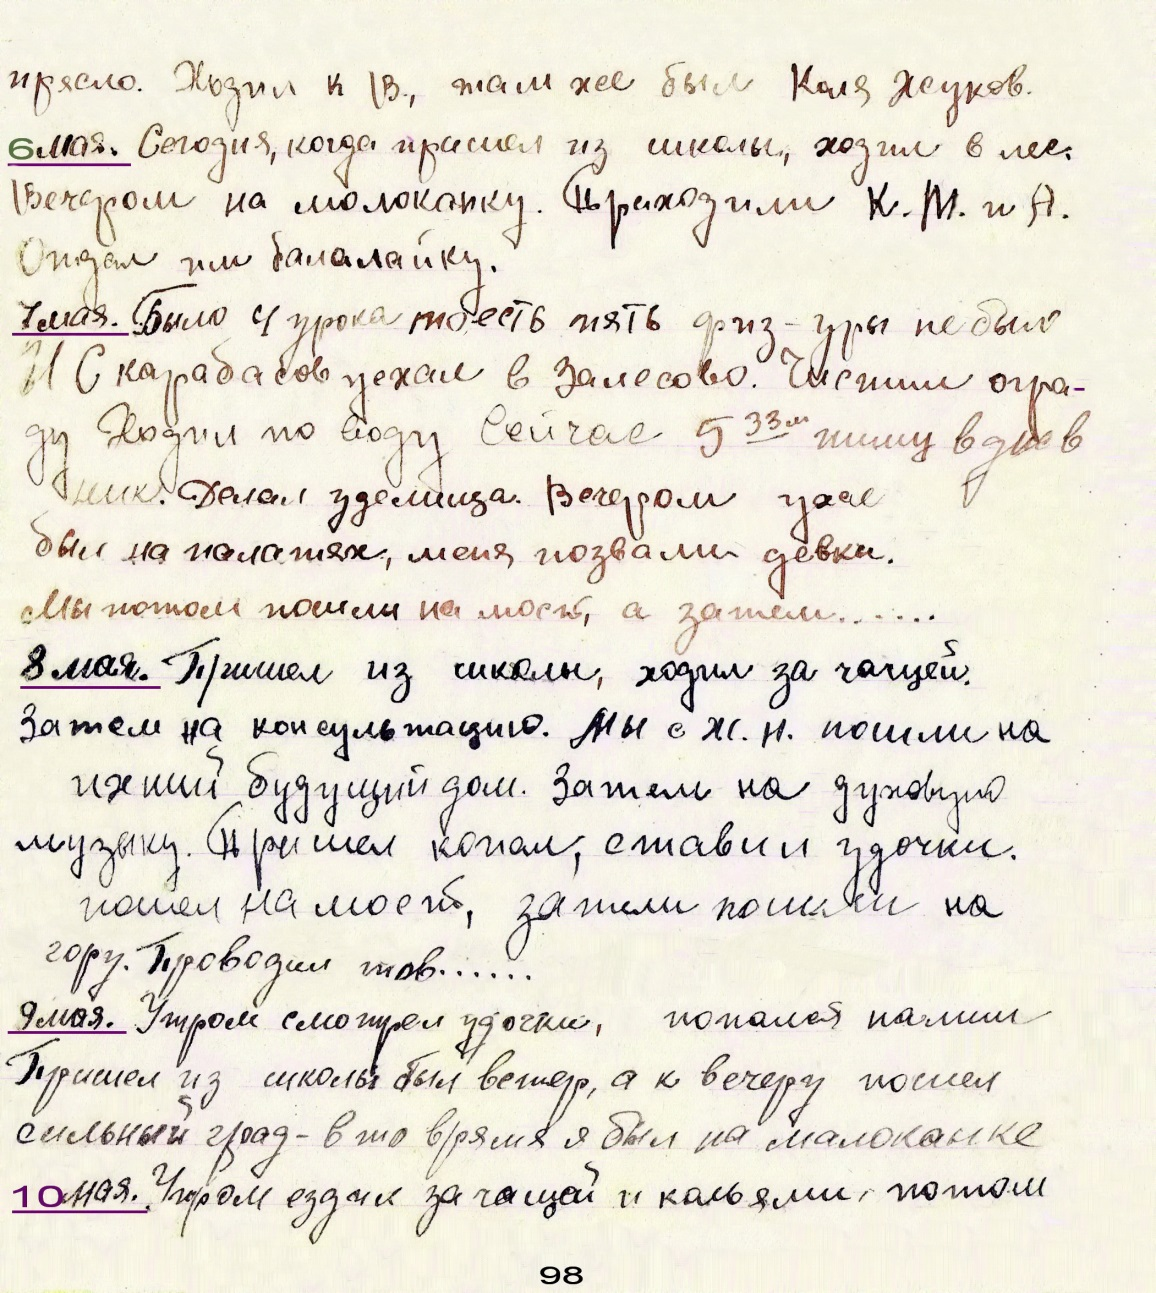 прясло. Ходил к В., там же был Коля Жуков.
6 мая. Сегодня, когда пришел из школы, ходил в лес.
Вечером на молоканку. Приходили К. М. и А.
Отдал им балалайку.
7 мая. Было 4 урока тоесть пять физ-уры не было
И С карабасов уехал в Залесово. Чистили огра-
ду Ходил по воду Сейчас 5 33м пишу в днев
ник. Делал уделища. Вечером уже
был на палатях, меня позвали девки.
Мы потом пошли на мост, а затем......
8 мая. Пришел из школы, ходил за чащей.
Затем на консультацию. Мы с Ж. Н. пошли на
ихний будущий дом. Затем на духовую
музыку. Пришел копал, ставил удочки.
пошел на мост, затем пошли на
гору. Проводил тов......
9 мая. Утром смотрел удочки, попался налим
Пришел из школы был ветер, а к вечеру пошел
сильный град - в то время я был на малоканке
10 мая. Утром ездил за чащей и кольями, потом
98